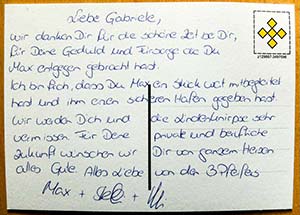 Liebe Gabriele,
wir danken Dir für die schöne Zeit bei Dir,
für Deine Geduld und Fürsorge die Du
Max entgegen gebracht hast.
Ich bin froh, dass Du Max ein Stück weit mitbegleitet
hast und ihm einen sicheren Hafen gegeben hast.
Wir werden Dich und die Zwiderwurzse sehr
vermissen. Für Deine private und berufliche
Zukunft wünschen wir Dir von ganzem Herzen
alles Gute. Alles Liebe von den 3 Pfeifers
Max + +